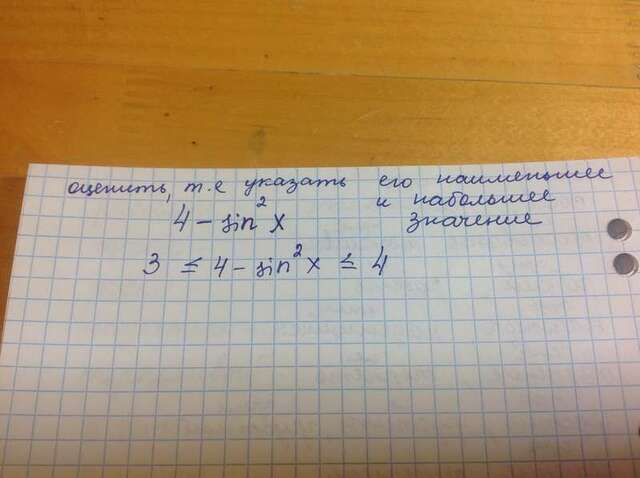 оценить, т.е указать его наименьшее
и набольшее
4 - sin² x значение
3 ≤ 4 - sin² x ≤ 4